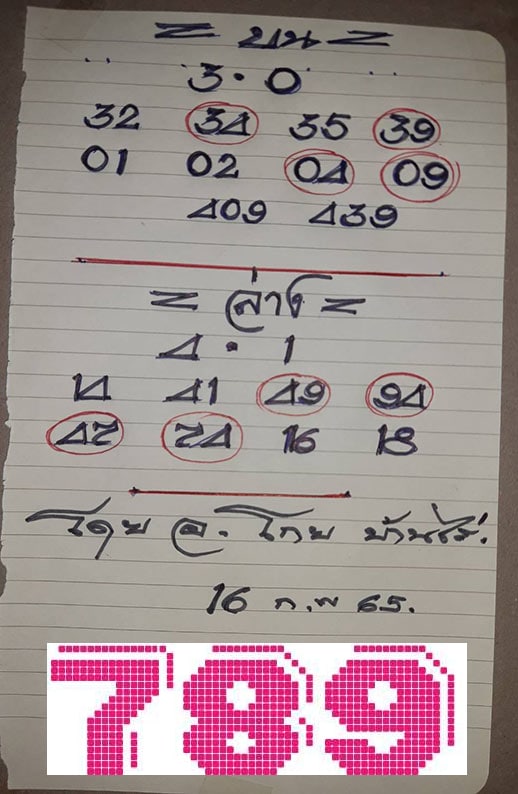 = บน =
3 · 0
32 34 35 39
01 02 04 09
409 439
= ล่าง =
4 · 1
14 41 49 94
47 74 16 18
โดย อ. โกย บ้านไร่.
16 ก.พ 65.
789